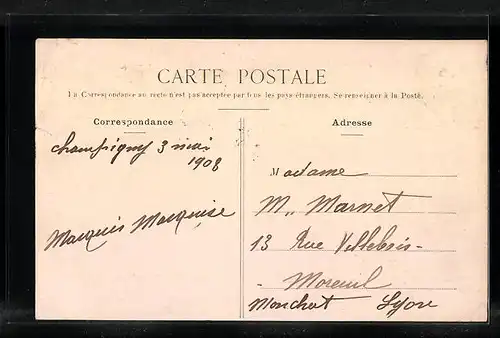 CARTE POSTALE
La Correspondance au recto n'est pas acceptée par tous les pays étrangers. Se renseigner à la Poste.
Correspondance
Champigny 3 mai
1908
Marquis Marquise
Adresse
Madame
M,, Marnet
13 Rue Villebois-
- Moreuil
Monchat Lyon